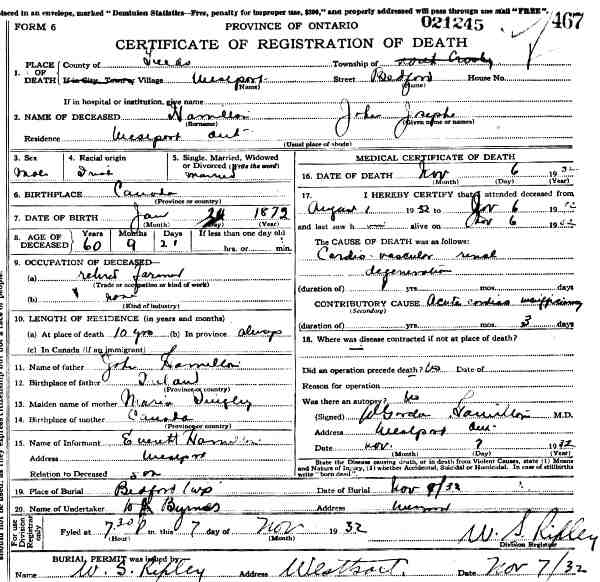 placed in an envelope, marked "Dominion Statistics—Free, penalty for improper use, $300," and properly addressed will pass through mail "FREE".
FORM 6 PROVINCE OF ONTARIO 021245 467
CERTIFICATE OF REGISTRATION OF DEATH
1. PLACE OF DEATH County of Leeds Township of North Crosby
If in City, Town, Village Westport (Name) Street Bedford (Name) House No.
If in hospital or institution, give name
2. NAME OF DECEASED Hamilton (Surname) John Joseph (Given name or names)
Residence Westport Ont (Usual place of abode)
3. Sex 4. Racial origin 5. Single, Married, Widowed or Divorced (Write the word)
Male Irish married
6. BIRTHPLACE Canada (Province or country)
7. DATE OF BIRTH Jan (Month) (Day) 1872 (Year)
8. AGE OF DECEASED Years Months Days If less than one day old
60 9 21 hrs. or min.
9. OCCUPATION OF DECEASED—
(a) retired farmer (Trade or occupation or kind of work)
(b) none (Kind of industry)
10. LENGTH OF RESIDENCE (in years and months)
(a) At place of death 10 yrs (b) In province always
(c) In Canada (if an immigrant)
11. Name of father John Hamilton
12. Birthplace of father Ireland (Province or country)
13. Maiden name of mother Maria
14. Birthplace of mother Canada (Province or country)
15. Name of Informant Everett Hamilton
Address Westport
Relation to Deceased son
19. Place of Burial Bedford twp
20. Name of Undertaker Byrnes
MEDICAL CERTIFICATE OF DEATH
16. DATE OF DEATH Nov (Month) 6 (Day) 1932 (Year)
17. I HEREBY CERTIFY that I attended deceased from
August 1 1932 to Nov 6 1932
and last saw h alive on Nov 6 1932
The CAUSE OF DEATH was as follows:
Cardio-vascular renal
degeneration
(duration of) yrs. mos. days
CONTRIBUTORY CAUSE Acute cardiac insufficiency
(Secondary)
(duration of) yrs. mos. 3 days
18. Where was disease contracted if not at place of death?
Did an operation precede death? No Date of
Reason for operation
Was there an autopsy? No
(Signed) Gordon Hamilton M.D.
Address Westport Ont
Date Nov. (Month) 7 (Day) 1932 (Year)
State the Disease causing death, or in death from Violent Causes, state (1) Means and Nature of Injury, (2) whether Accidental, Suicidal or Homicidal. In case of stillbirths write "born dead".
Date of Burial Nov /32
Address
For use of Division Registrar only Fyled at 7:30 P (Hour) m. this 7 day of Nov (Month) 1932 W. S. Ripley
Division Registrar
BURIAL PERMIT was issued by
W. S. Ripley Address Westport Date Nov 7/32